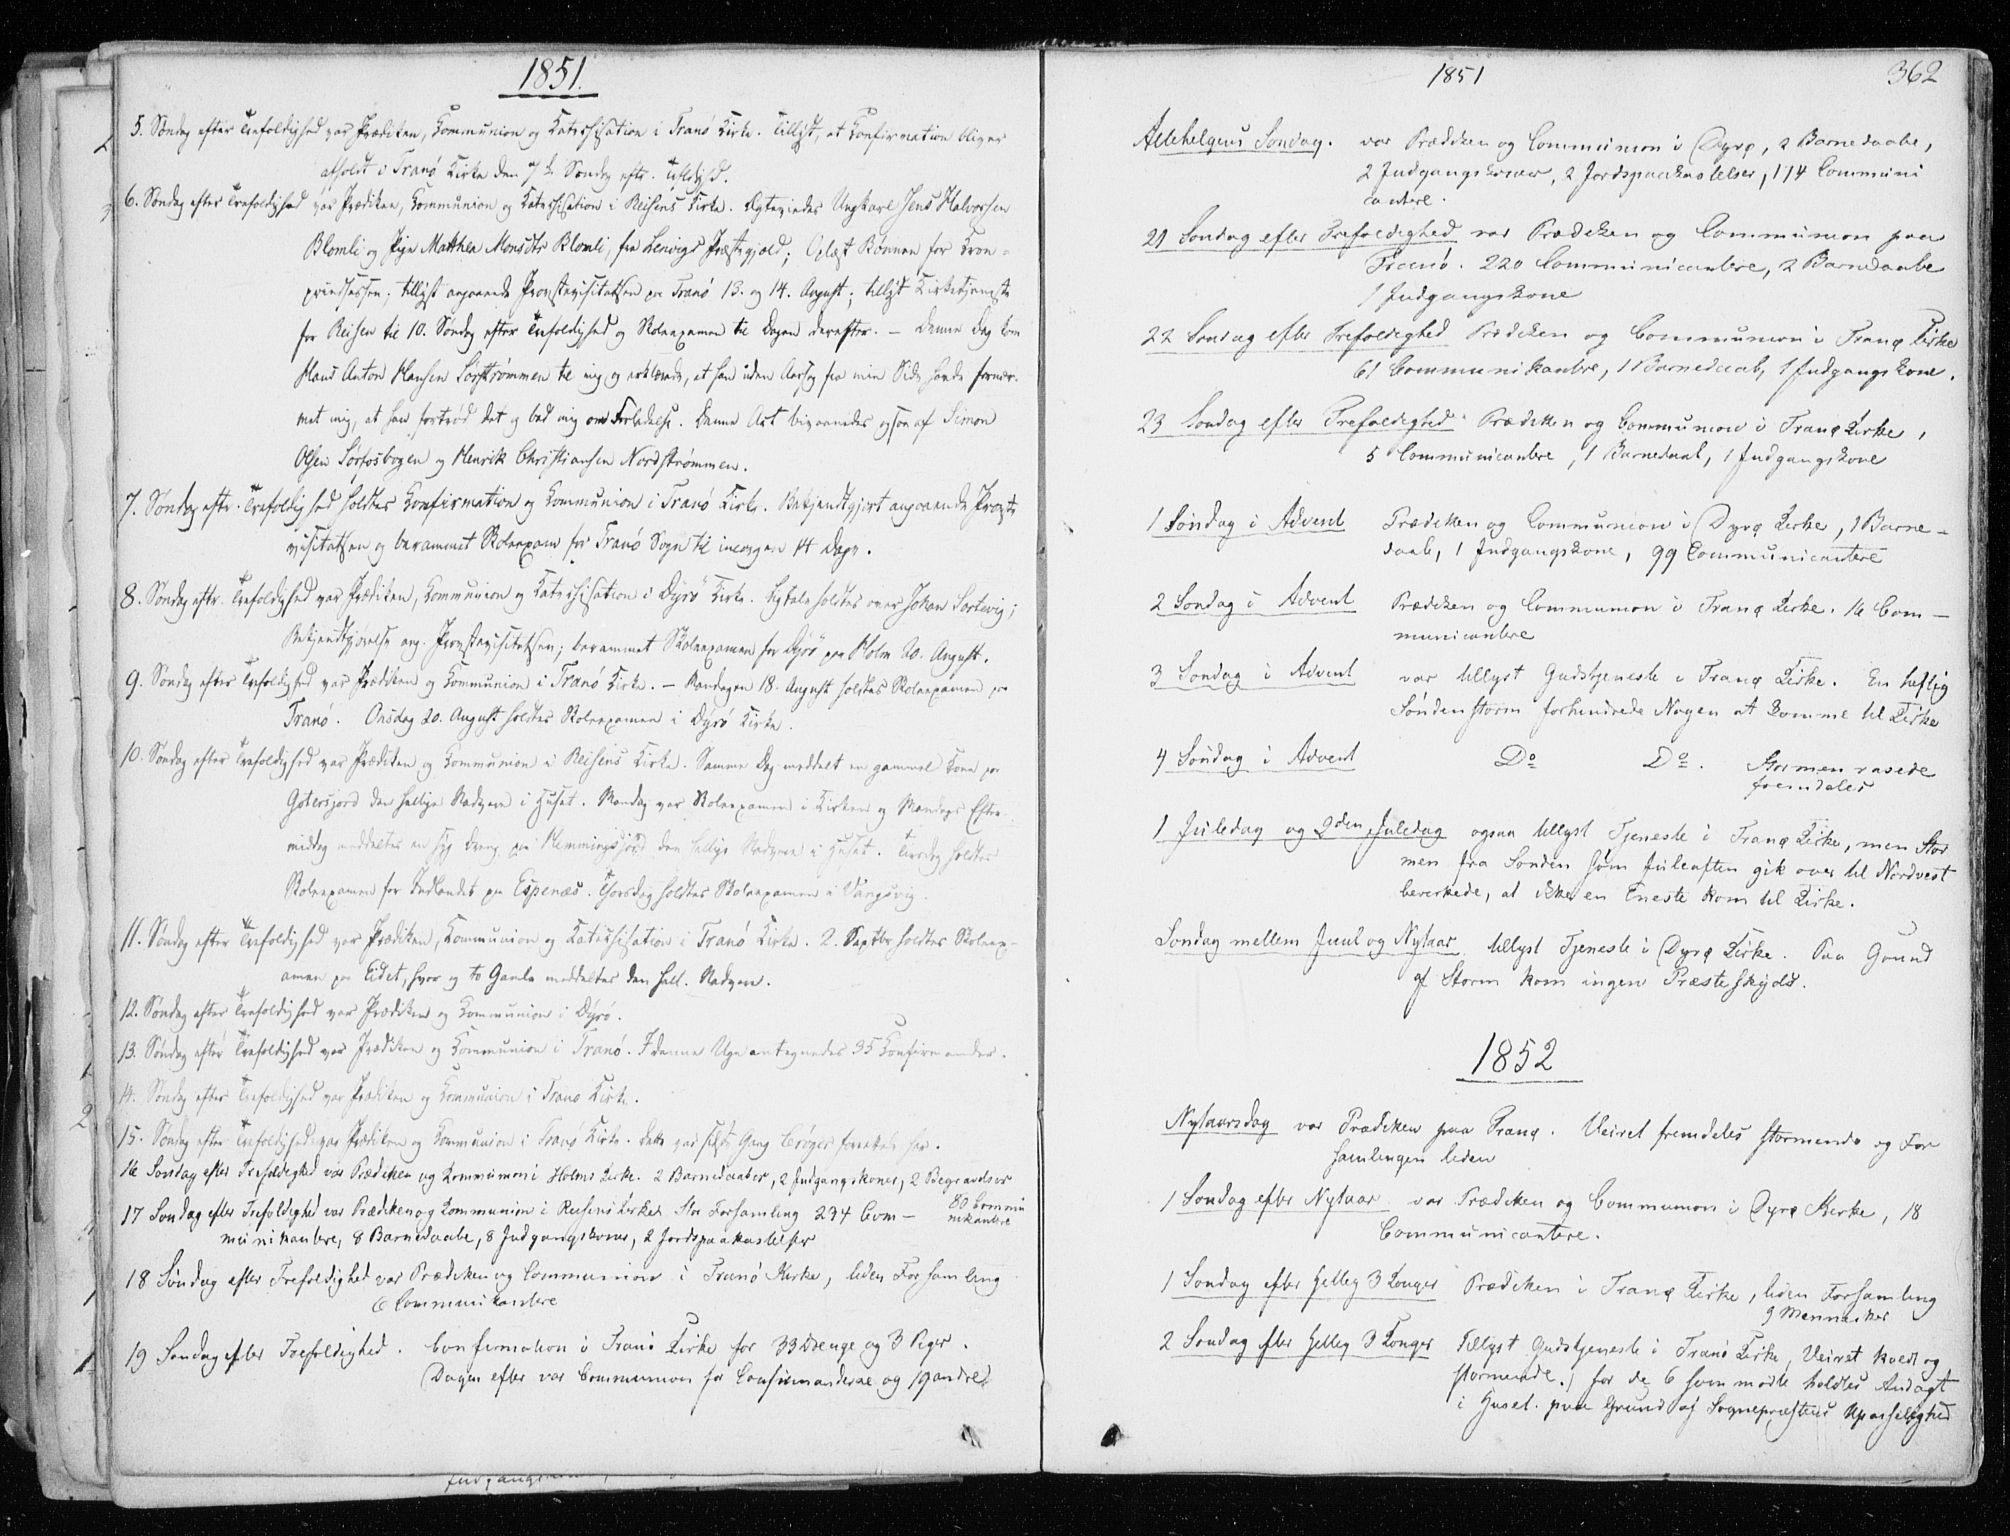 1851.
5. Søndag efter Trefoldighed var Prædiken, Kommunion og Katechisation i Tranö Kirke. Tillyst, at Konfirmation bliver
afholdt i Tranö Kirke den 7de Søndag eftr. Trfldghd.
6. Søndag efter Trefoldighed var Prædiken, Kommunion og Katechisation i Reisens Kirke. Ægteviedes Ungkarl Jens Halvorsen
Blomli og Pige Matthea Monsdtr Blomli, fra Lenvigs Præstegjæld; Oplæst Bønnen for Kron-
prindsessen; tillyst angaaende Provstevisitatsen paa Tranö 13. og 14. August; tillyst Kirketjeneste
for Reisen til 10. Søndag efter Trefoldighed og Skoleexamen til Dagen derefter. — Denne Dag kom
Hans Anton Hansen Sørstrømmen til mig og erklærede, at han uden Aarsag fra min Side havde fornær-
met mig, at han fortrød det og bad mig om Forladelse. Denne Act bivaanedes ogsaa af Simon
Olsen Sørfosbogen og Henrik Christiansen Nordstrømmen.
7. Søndag eftr. Trefoldighed holdtes Konfirmation og Kommunion i Tranö Kirke. Bekjendtgjort angaaende Provste
visitatsen og berammet Skoleexam for Tranö Sogn til imorgen 14 Dage.
8. Søndag eftr. Trefoldighed var Prædiken, Kommunion og Katechisation i Dyrö Kirke. Ligtale holdtes over Johan Sørlevig;
Bekjendtgjørelse ang. Provstevisitatsen; berammet Skoleexamen for Dyrö paa Holm 20. August.
9. Søndag efter Trefoldighed var Prædiken og Kommunion i Tranö Kirke. — Mandagen 18. August holdtes Skoleexamen paa
Tranö. Onsdag 20. August holdtes Skoleexamen i Dyrö Kirke.
10. Søndag efter Trefoldighed var Prædiken og Kommunion i Reisens Kirke. Samme Dag meddelt en gammel Kone paa
Gotersjord den hellige Nadvere i Huset. Mandag var Skoleexamen i Kirken og Mandags Efter-
middag meddeltes en syg Dreng paa Hemmingsjord den hellige Nadvere i Huset. Tirsdag holdtes
Skoleexamen for Indlandet paa Espenæs. Thorsdag holdtes Skoleexamen i Vangsvig.
11. Søndag efter Trefoldighed var Prædiken, Kommunion og Katechisation i Tranö Kirke. 2. Septbr holdtes Skoleex-
amen paa Eidet, hvor og to Gamle meddeltes den hell. Nadvere.
12. Søndag efter Trefoldighed var Prædiken og Kommunion i Dyrö.
13. Søndag efter Trefoldighed var Prædiken og Kommunion i Tranö. I denne Uge antegnedes 35 Konfirmander.
14. Søndag efter Trefoldighed var Prædiken og Kommunion i Tranö Kirke.
15. Søndag efter Trefoldighed var Prædiken og Kommunion i Tranö Kirke. Dette var sidste Gang Crøger prækede her.
16 Søndag efter Trefoldighed var Prædiken og Kommunion i Holms Kirke. 2 Barnedaaber, 2 Indgangskoner, 2 Begravelser
80 Commu
nikantere
17 Søndag efter Trefoldighed var Prædiken og Kommunion i Reisens Kirke. Stor Forsamling 234 Com-
munikantere, 8 Barnedaabe, 8 Indgangskoner, 2 Jordspaakastelser
18 Søndag efter Trefoldighed var Prædiken og Communion i Tranö Kirke, liden Forsamling
6 Communikantere
19 Søndag efter Trefoldighed. Confirmation i Tranö Kirke for 33 Drenge og 3 Piger.
Dagen efter var Communion for Confirmanderne og 19 andre.
1851
362
Allehelgens Søndag. var Prædiken og Communion i Dyrø, 2 Barnedaabe,
2 Indgangskoner, 2 Jordspaakastelser, 114 Communi
cantere.
21 Søndag efter Trefoldighed var Prædiken og Communion paa
Tranö. 220 Communicantere, 2 Barnedaabe
1 Indgangskone
22 Søndag efter Trefoldighed Prædiken og Communion i Tranø Kirke
61 Communikantere, 1 Barnedaab, 1 Indgangskone.
23 Søndag efter Trefoldighed Prædiken og Communion i Tranø Kirke,
5 Communicantere, 1 Barnedaab, 1 Indgangskone
1 Søndag i Advent Prædiken og Communion i Dyrø Kirke, 1 Barne-
daab, 1 Indgangskone, 99 Communicantere
2 Søndag i Advent Prædiken og Communion i Tranø Kirke. 16 Com-
municantere
3 Søndag i Advent var tillyst Gudstjeneste i Tranø Kirke. En heftig
Søndenstorm forhindrede Nogen at komme til Kirke
4 Søndag i Advent Do Do. Stormen rasede
fremdeles
1 Juledag og 2den Juledag ogsaa tillyst Tjeneste i Tranø Kirke, men Stor
men fra Sønden som Juleaften gik over til Nordvest
bevirkede, at ikke en Eneste kom til Kirke.
Søndag mellem Juul og Nytaar tillyst Tjeneste i Dyrø Kirke. Paa Grund
af Storm kom ingen Præsteskyds.
1852
Nytaarsdag var Prædiken paa Tranø. Veiret fremdeles stormende og For
samlingen liden
1 Søndag efter Nytaar var Prædiken og Communion i Dyrø Kirke, 18
Communicantere.
1 Søndag efter Hellig 3 Konger Prædiken i Tranø Kirke, liden Forsamling
9 Mennesker
2 Søndag efter Hellig 3 Konger Tillyst Gudstjeneste i Tranö Kirke, Veiret koldt og
stormende. for de 6 som mødte holdtes Andagt
i Huset. paa Grund af Sognepræstens Upasselighed